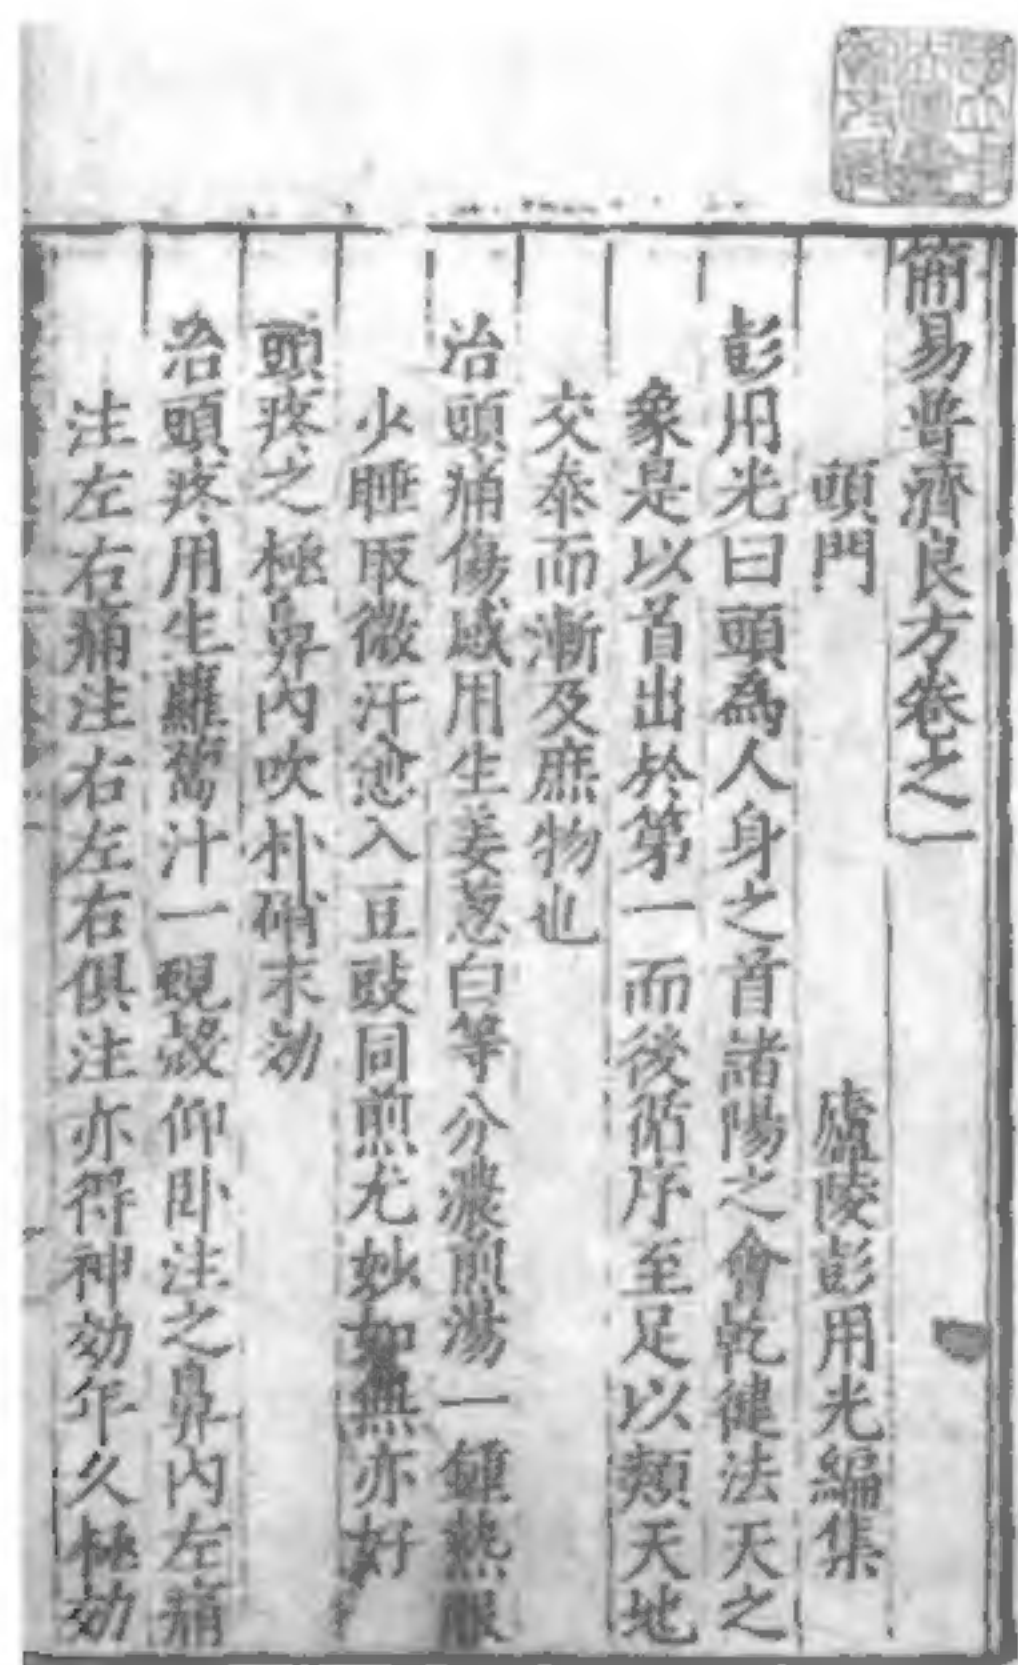 簡易普濟良方卷之一
頭門 廬陵彭用光編集
彭用光曰頭為人身之首諸陽之會乾健法天之
象是以首出於第一而後循序至足以類天地
交泰而漸及庶物也
治頭痛傷感用生姜葱白等分濃煎湯一鍾熱服
少睡取微汗愈入豆豉同煎尤妙如無亦好
頭疼之極鼻內吹朴硝末効
治頭疼用生蘿蔔汁一蜆殼仰臥注之鼻內左痛
注左右痛注右左右俱注亦得神効年久極効